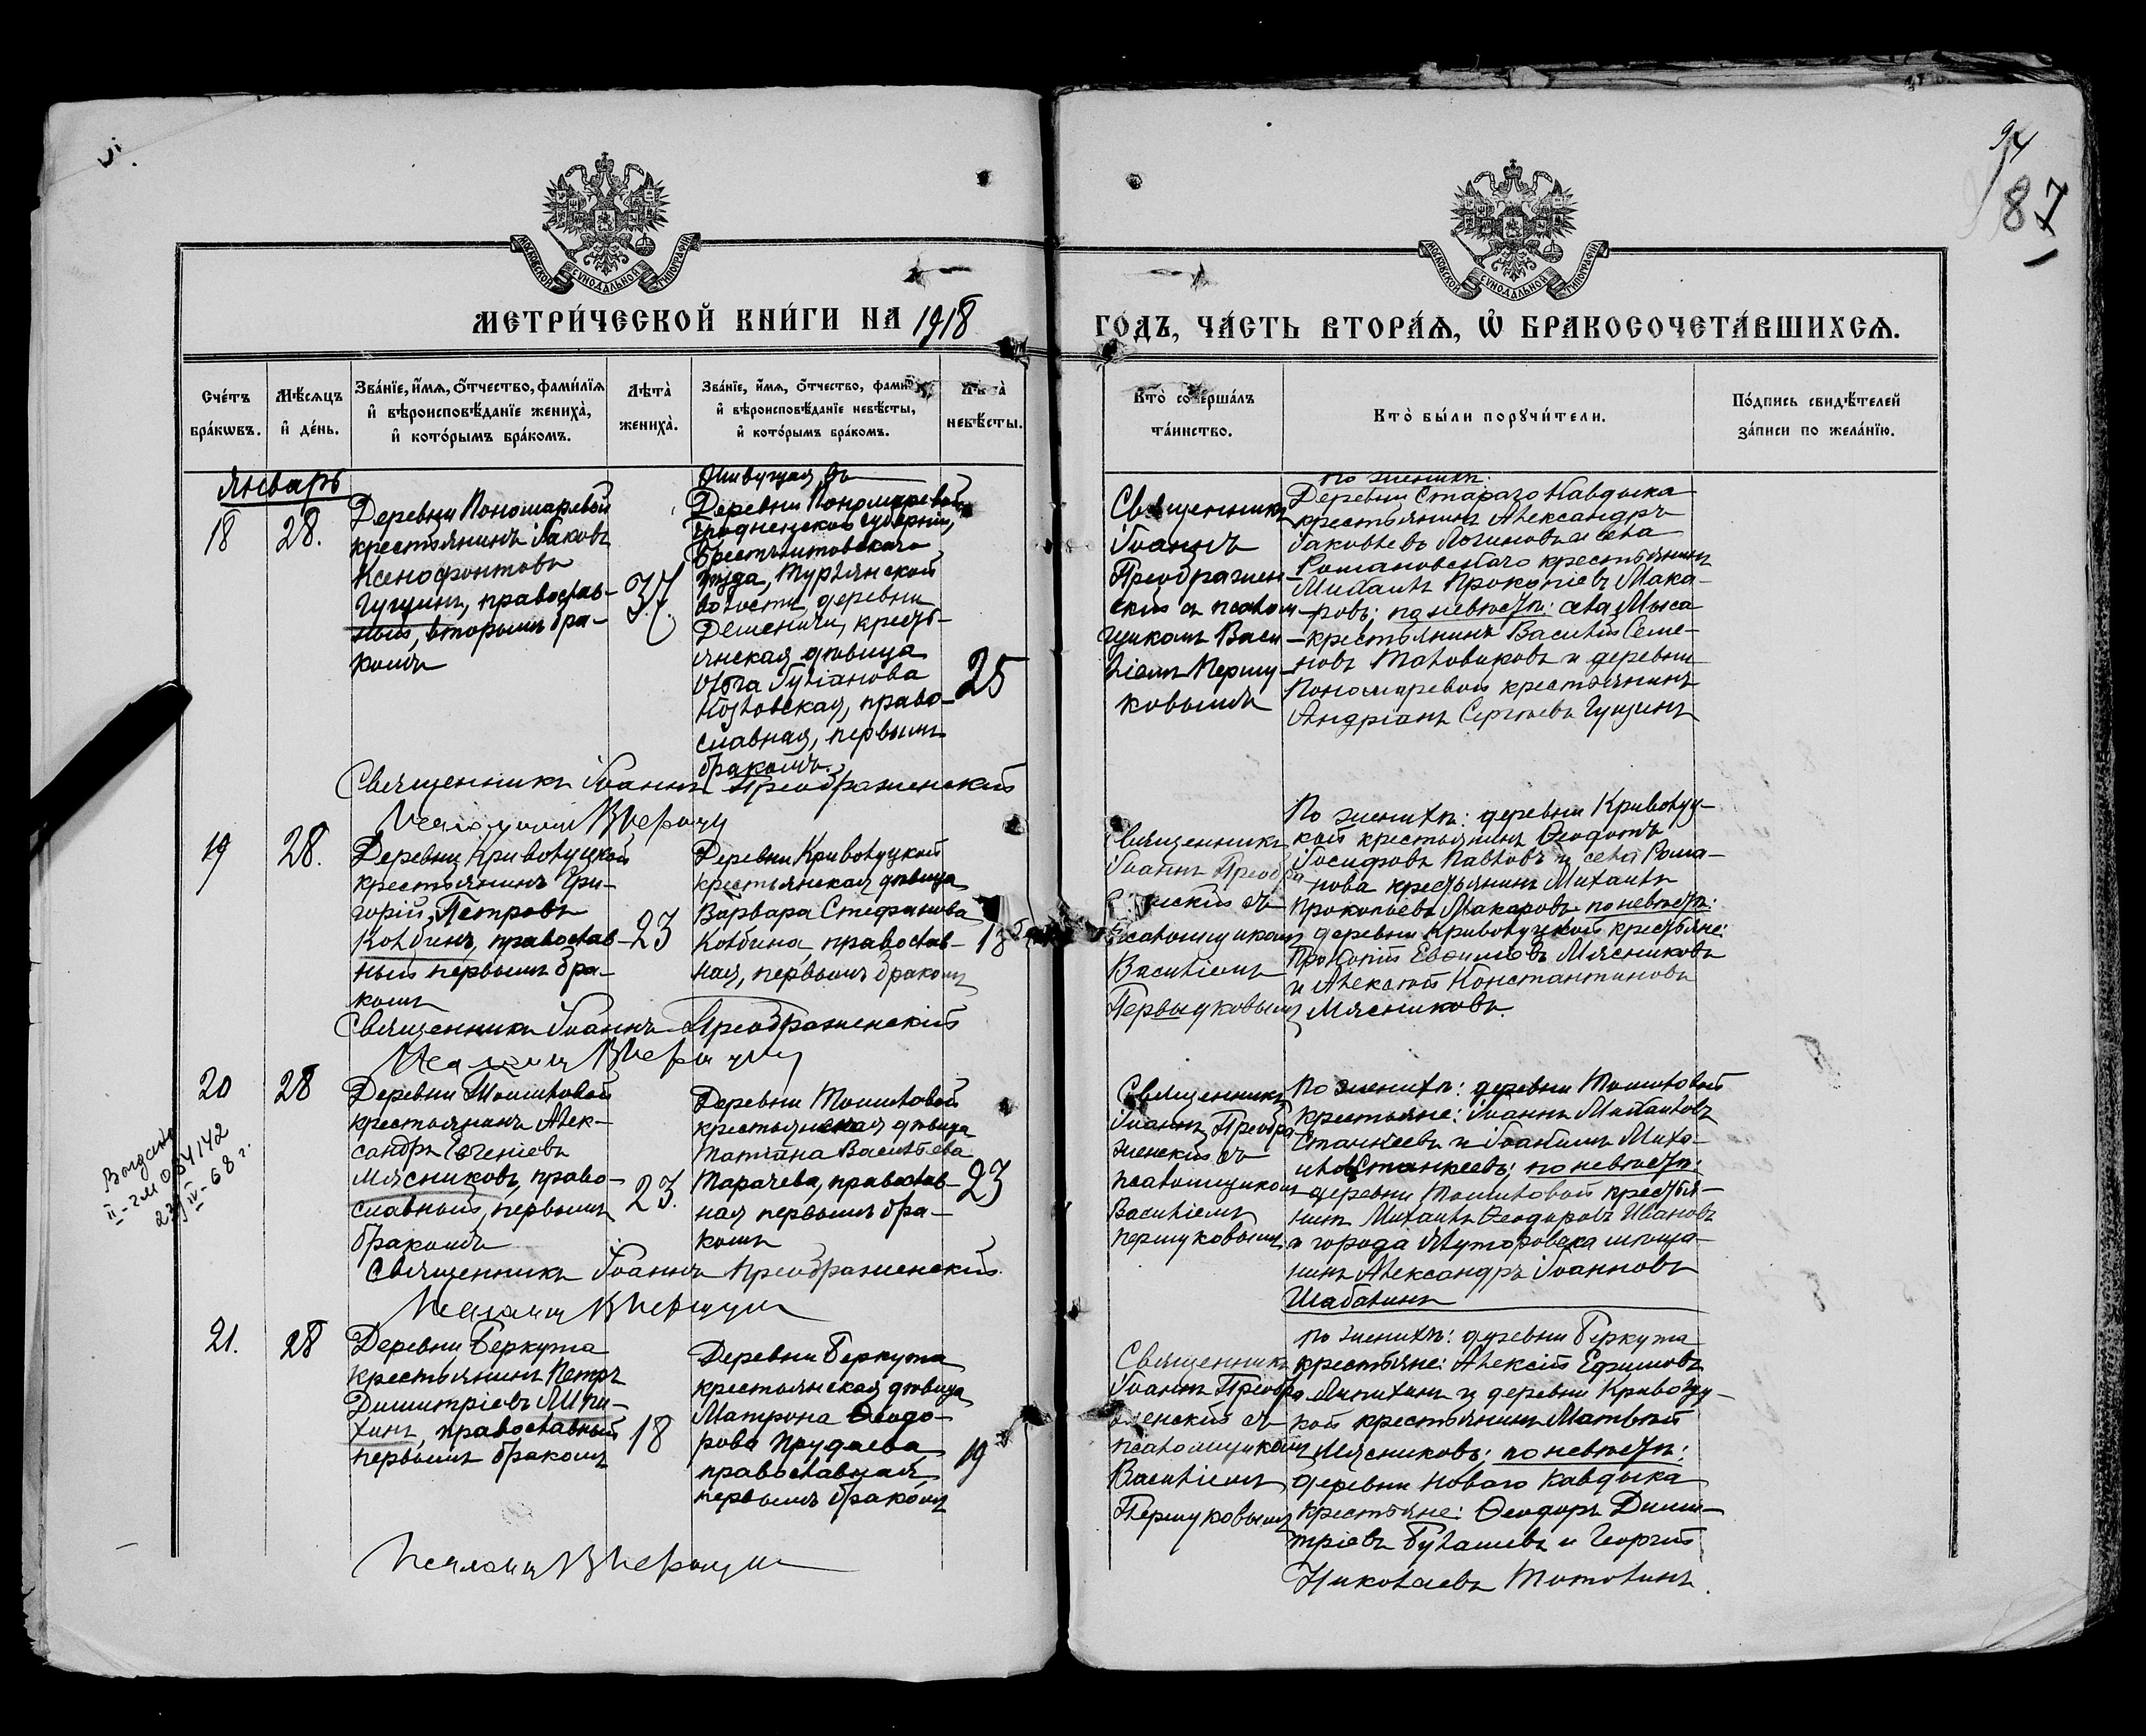 94
87
МОСКОВСКОЙ СѴНОДАЛЬНОЙ ТИПОГРАФІИ
МОСКОВСКОЙ СѴНОДАЛЬНОЙ ТИПОГРАФІИ
МЕТРИ́ЧЕСКОЙ КНИ́ГИ НА 1918
ГО́ДЪ, ЧА́СТЬ ВТОРА́Ѧ, Ѽ БРАКОСОЧЕТА́ВШИХСѦ.
Сче́тъ бра́кѡвъ.
Мѣ́сѧцъ и҆ де́нь.
Зва́нїе, и҆́мѧ, ѻ҆́тчество, фами́лїѧ
и҆ вѣроисповѣ́данїе жениха̀,
и҆ кото́рымъ бра́комъ.
Лѣ́та̀ жениха̀.
Зва́нїе, и҆́мѧ, ѻ҆́тчество, фами
и҆ вѣроисповѣ́данїе невѣ́сты,
и҆ кото́рымъ бра́комъ.
невѣ́сты.
Кто̀ соверша́лъ
та́инство.
Кто̀ бы́ли порꙋчи́тели.
По́дпись свидѣ́телей
за́писи по жела́нїю.
Январь
18
28.
Деревни Пономаревой
крестьянинъ Іаковъ
Ксенофонтовъ
Гущинъ, православ-
ный, вторымъ бра-
комъ
37.
Живущая въ
Деревни Пономаревой
Гродненской губерніи,
Брестлитовскаго
уѣзда, Турнянской
волости деревни
крестья-
янская дѣвица
Ольга Іуліанова
Козловская, право-
славная, первымъ
бракомъ.
25
Священникъ Іоаннъ Преображенскій
Священникъ
Іоаннъ
Преображен-
скій съ псалом-
щикомъ Васи-
ліемъ Першу-
ковымъ
По женихѣ:
Деревни Стараго Кавдыка
крестьянинъ Александръ
Іаковлевъ Логиновъ и села
Романовскаго крестьянинъ
Михаилъ Прокопіевъ Мака-
ровъ; по невѣстѣ: села Мыса
крестьянинъ Василій Семе-
новъ и деревни
Пономаревой крестьянинъ
Андріанъ Сергѣевъ Гущинъ
19
28.
Деревни Криволуцкой
крестьянинъ Гри-
горій Петровъ
Колбинъ, православ-
ный первымъ бра-
комъ
23
Деревни Криволуцкой
крестьянская дѣвица
Варвара Стефанова
Колбина, православ-
ная, первымъ бракомъ
Священникъ Іоаннъ Преображенскій
Священникъ
Іоаннъ Преобра
женскій съ
псаломщикомъ
Василіемъ
Першуковымъ
По женихѣ: деревни Криволуц-
кой крестьянинъ Ѳеодотъ
Іосифовъ Павловъ и села Рома-
нова крестьянинъ Михаилъ
Прокопьевъ Макаровъ по невѣстѣ:
деревни Криволуцкой крестьяне:
Прокопій Евѳиміевъ Мясниковъ
и Алексѣй Константиновъ
Мясниковъ.
20
28
Деревни Томиловой
крестьянинъ Алек-
сандръ Евгеніевъ
Мясниковъ, право-
славный, первымъ
бракомъ
23.
Деревни Томиловой
крестьянская дѣвица
Татіана Васильева
Тарачева, православ-
ная первымъ бра-
комъ
23
II-ГМ 084142
23/IV-68 г.
Священникъ Іоаннъ Преображенскій
Священникъ
Іоаннъ Преобра
женскій съ
псаломщикомъ
Василіемъ
Першуковымъ
По женихѣ: деревни Томиловой
крестьяне: Іоаннъ Михаиловъ
Станкеевъ и Іоакимъ Миха-
иловъ Станкеевъ; по невѣстѣ:
деревни Томиловой крестья-
нинъ Михаилъ Ѳеодоровъ Ивановъ
и города Ялуторовска мѣща-
нинъ Александръ Іоанновъ
Шабалинъ
21.
28
Деревни Беркута
крестьянинъ Петръ
Димитріевъ Липи-
хинъ, православный
первымъ бракомъ
18
Деревни Беркута
крестьянская дѣвица
Матрона Ѳеодо-
рова Прудаева
православная
первымъ бракомъ
19
Священникъ
Іоаннъ Преобра
женскій съ
псаломщикомъ
Василіемъ
Першуковымъ
По женихѣ: деревни Беркута
крестьяне: Алексій Ефимовъ
Липихинъ и деревни Криволу-
кой крестьянинъ Матвѣй
Мясниковъ; по невѣстѣ:
деревни Новаго Кавдыка
крестьяне: Ѳеодоръ Дими-
тріевъ Булашевъ и Георгій
Николаевъ Титовинъ.